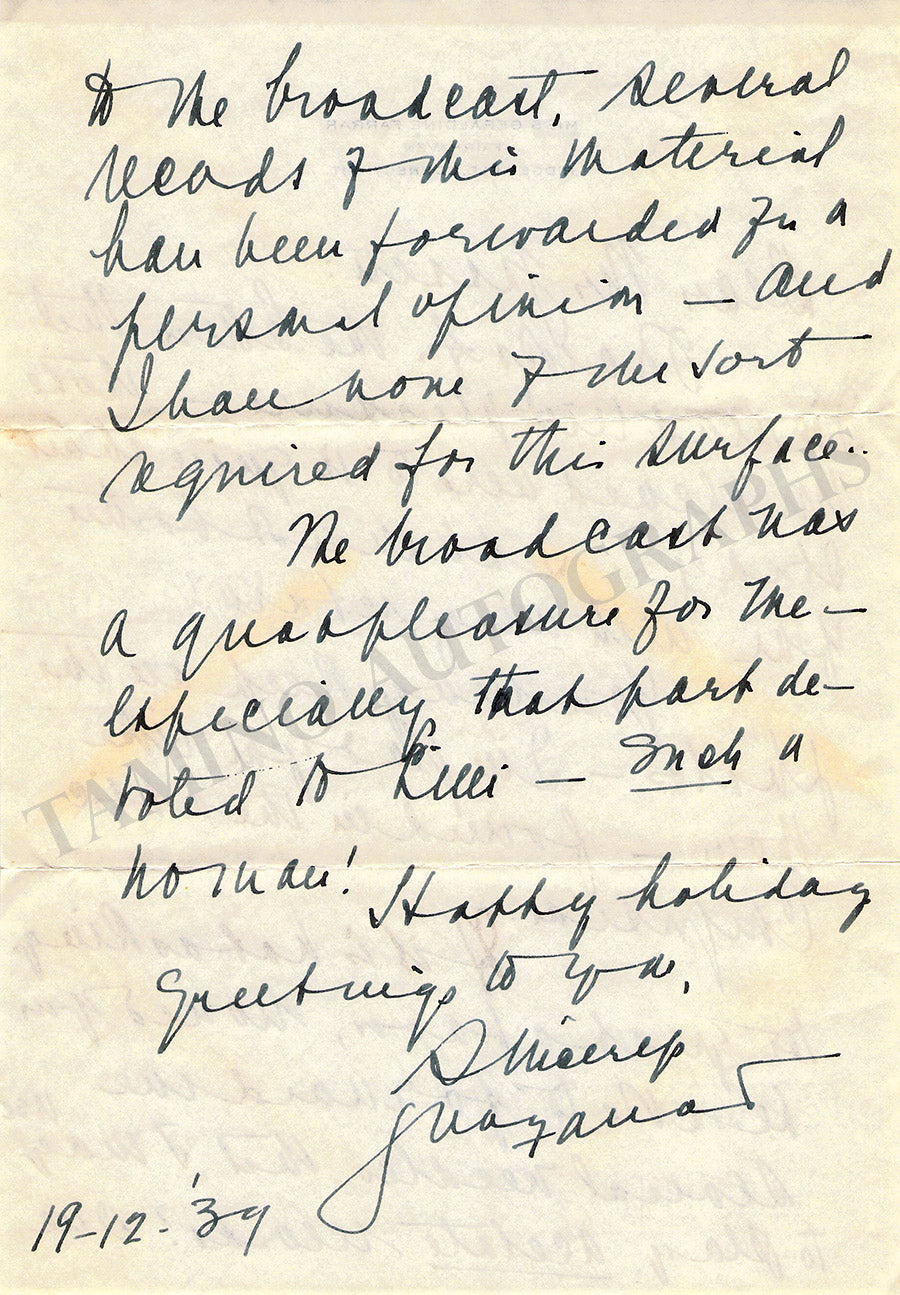 to the broadcast, several
records of this material
have been forwarded for a
personal opinion — and
I have none of the sort
required for this surface..
The broadcast was
a great pleasure for me —
especially that part de-
voted to Lilli — such a
woman!
Happy holiday
Greetings to you,
Sincerely
19-12-'39
TAMINO AUTOGRAPHS